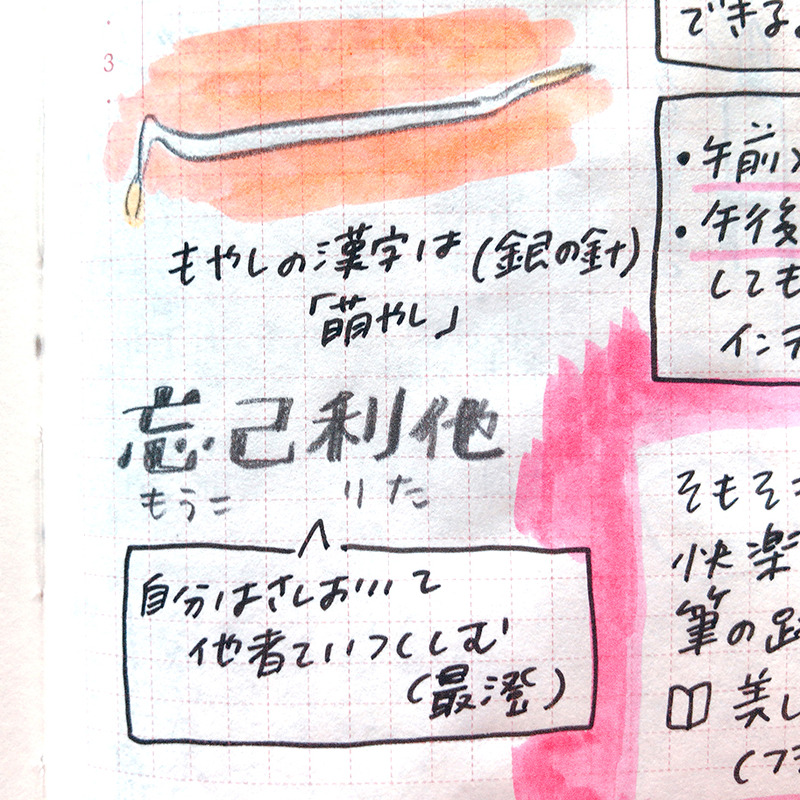 3
もやしの漢字は(銀の針)
「萌やし」
忘己利他
もうこ りた
自分はさしおいて
他者をいつくしむ
(最澄)
できる。
・午前
・午後
しても
インテ
そもそ
快楽
筆の跡
美し
(フ